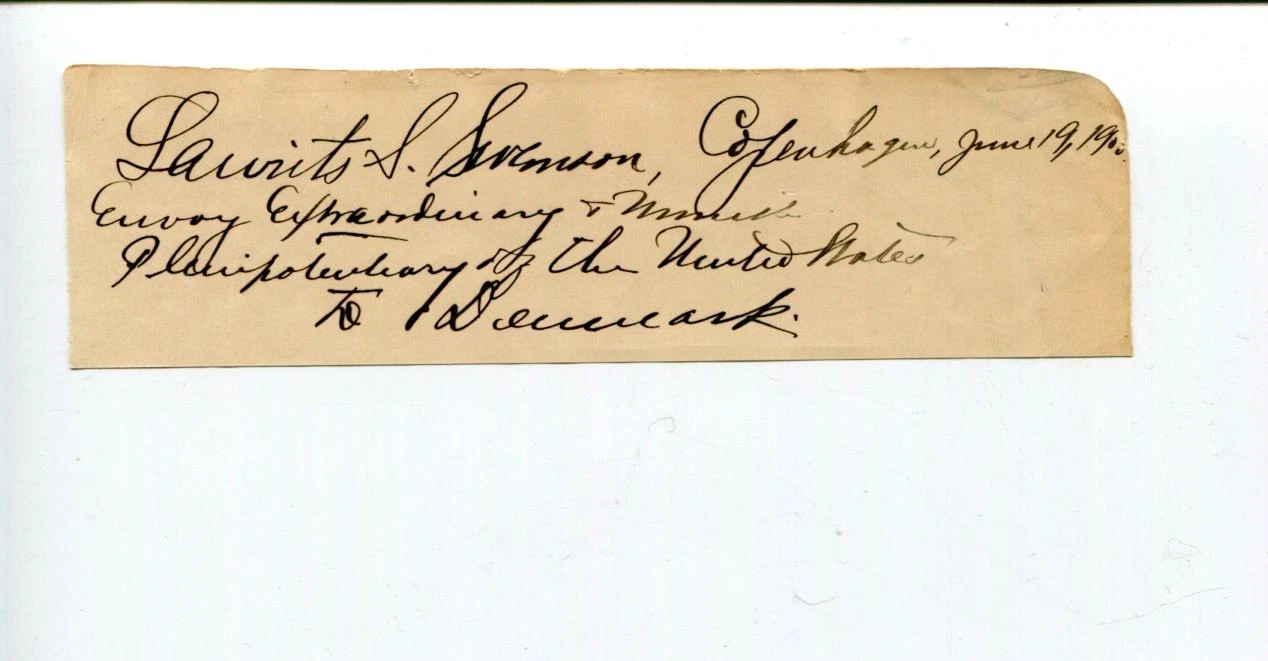 Laurits S. Swenson, Copenhagen, June 19, 1900.
Envoy Extraordinary & Minister
Plenipotentiary of the United States
To Denmark.